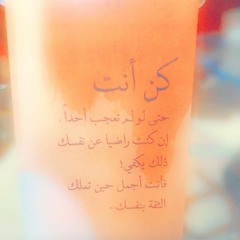 كن أنت
حتى لو لم تعجب أحداً.
إن كنت راضيا عن نفسك
ذلك يكفي!
فأنت أجمل حين تملك
الثقة بنفسك..